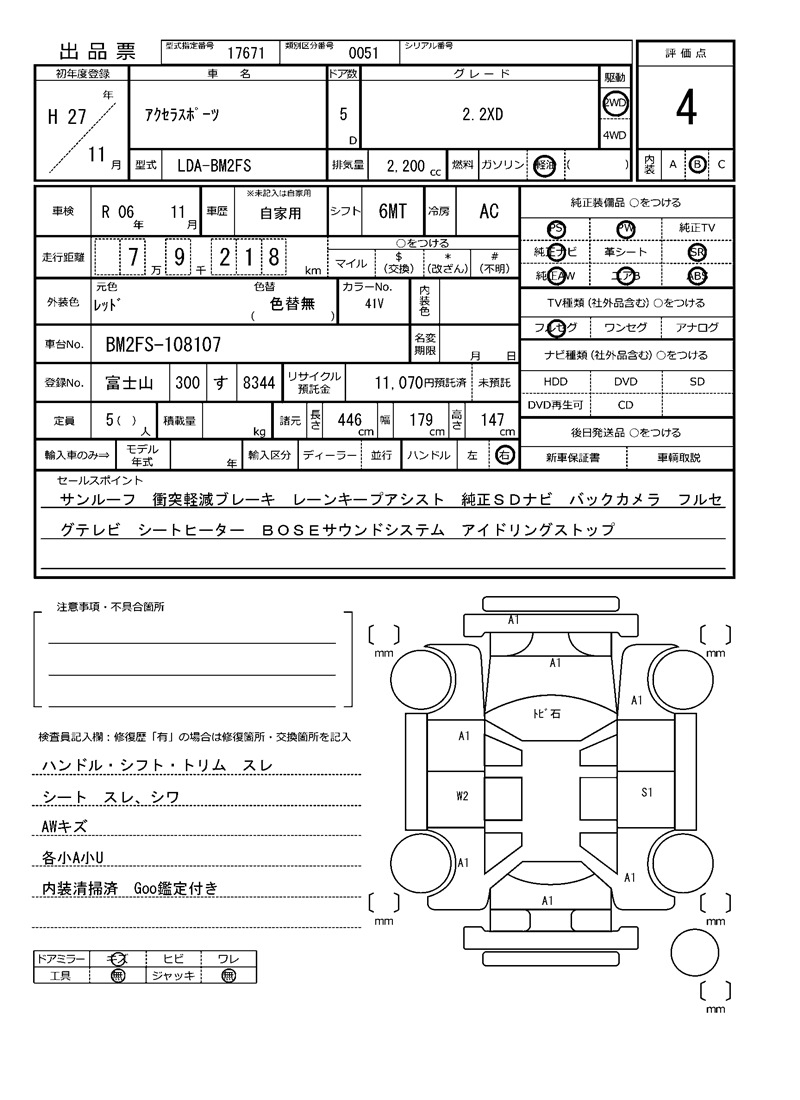 出品票 型式指定番号 17671 類別区分番号 0051 シリアル番号
評価点
4
内装 A B C
初年度登録 車名 ドア数 グレード 駆動
H 27 年 11 月 アクセラスポーツ 5 D 2.2XD 2WD 4WD
型式 LDA-BM2FS 排気量 2,200 cc 燃料 ガソリン 軽油 ( )
車検 R 06 年 11 月 車歴 ※未記入は自家用 自家用 シフト 6MT 冷房 AC
走行距離 7 万 9 千 2 1 8 km ○をつける
マイル $ (交換) * (改ざん) # (不明)
外装色 元色 レッド 色替 ( 色替無 ) カラーNo. 41V 内装色
車台No. BM2FS-108107 名変期限 月 日
登録No. 富士山 300 す 8344 リサイクル預託金 11,070円預託済 未預託
定員 5( ) 人 積載量 kg 諸元 長さ 446 cm 幅 179 cm 高さ 147 cm
輸入車のみ⇒ モデル年式 年 輸入区分 ディーラー 並行 ハンドル 左 右
純正装備品 ○をつける
PS PW 純正TV
純正ナビ 革シート SR
純正AW エアB ABS
TV種類(社外品含む) ○をつける
フルセグ ワンセグ アナログ
ナビ種類(社外品含む) ○をつける
HDD DVD SD
DVD再生可 CD
後日発送品 ○をつける
新車保証書 車輌取説
セールスポイント
サンルーフ 衝突軽減ブレーキ レーンキープアシスト 純正SDナビ バックカメラ フルセ
グテレビ シートヒーター BOSEサウンドシステム アイドリングストップ
注意事項・不具合箇所
検査員記入欄：修復歴「有」の場合は修復箇所・交換箇所を記入
ハンドル・シフト・トリム スレ
シート スレ、シワ
AWキズ
各小A小U
内装清掃済 Goo鑑定付き
ドアミラー キズ ヒビ ワレ
工具 無 ジャッキ 無
A1
mm mm
A1
A1
トビ石
A1
W2 S1
A1 A1
A1
mm mm
mm